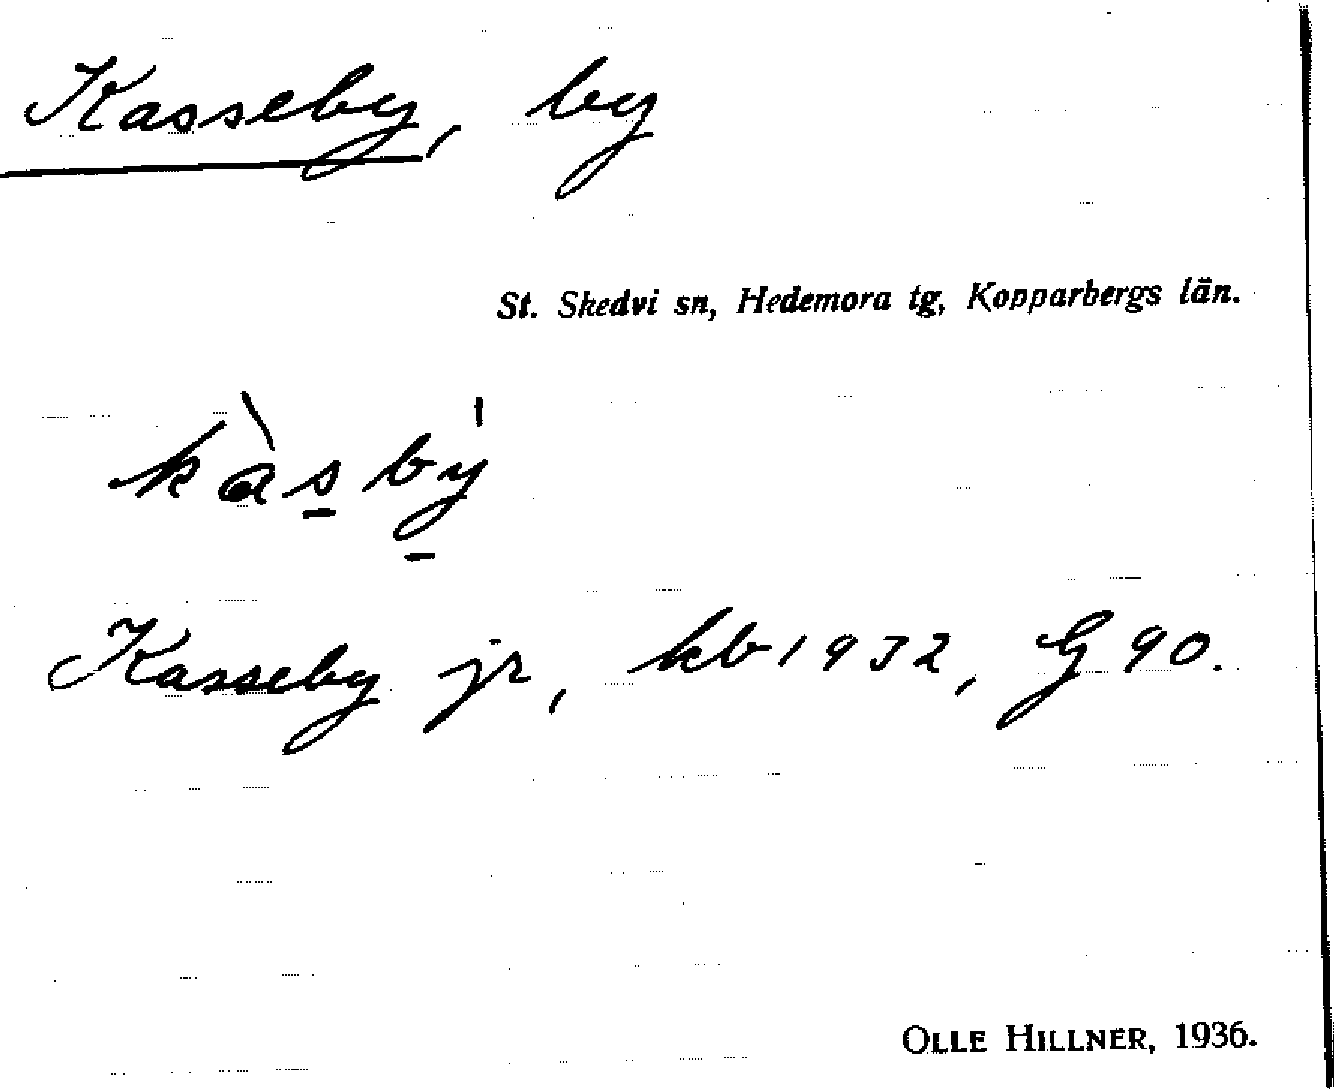 Kasseby, by
St. Skedvi sn, Hedemora tg, Kopparbergs län.
kàsbý
Kasseby jr, kb 1932, G 90.
OLLE HILLNER, 1936.